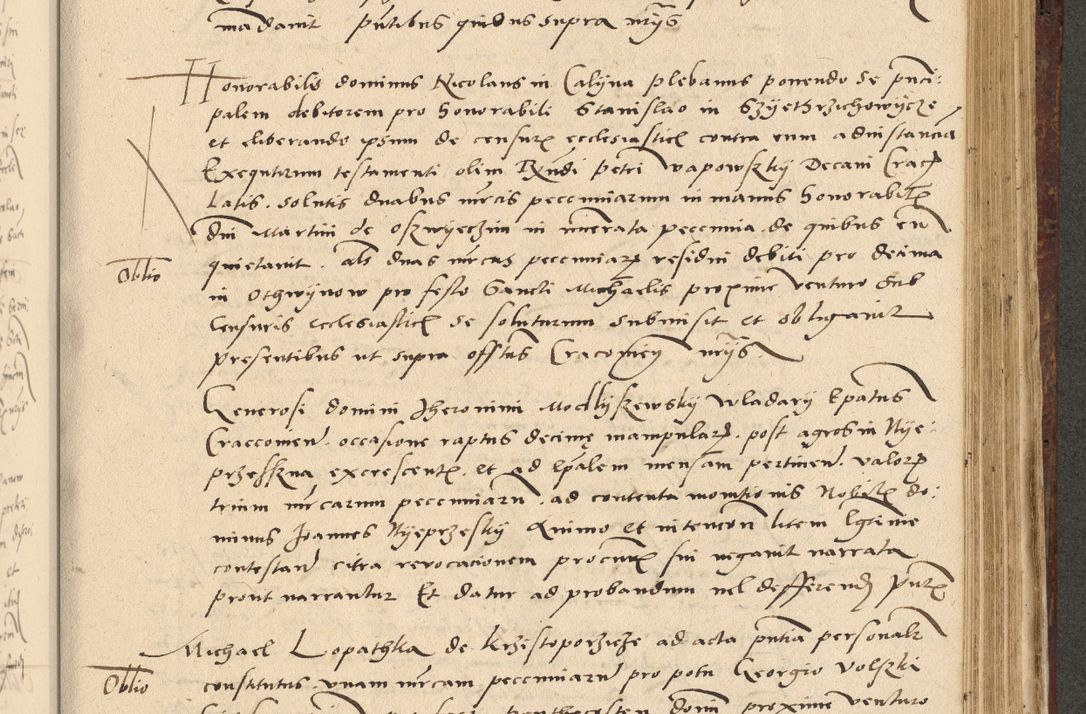 mandavit pntibus quibus supra nrys
Honorabilis dominus Nicolaus in Calyna plebanus ponendo se prnci:
palem debitorem pro honorabili Stanislao in Szyethrzichowycze
et liberando ipsum de censura ecclesiastica contra eum ad instancia
Exequtirum testamenti olim Rndi petri Wapowszky Decani Crac
latis. solutis duabus mrcis pecuniarum in manus honorabilis
dni Martini de Oszwyeczim in numerata pecunia. de quibus eum
Oblio
quietavit. als duas mrcas pecuniar residui debiti pro decima
in Othwynow pro festo Sancti Michaelis proxime venturo sub
Censuris ecclesiasticis se soluturum submisit et obligavit
presentibus ut supra offtus Cracovien nrys.
Generosi domini Iheronimi Modlyszewsky wladary Epatus
Craccovien. occasione raptus decime manipular. post agros in Nye:
przesszna excrescente. et ad Epalem mensam pertinen. valor
trium mrcarum pecuniaru. ad contenta monitionis Nobilis do:
minus Joannes Nyeprzesky Animo et intencon litem lgitime
contestan citra revocacionem procurat sui negavit narrata
prout narrantur Et datur ad probandum vel defferend Jurta
Michael Lopathka de krzistoporzicze ad acta pntia personalr
Oblio
constitutus. vnam mrcam pecuniaru pro potu Georgio Volszki
proxime venturo